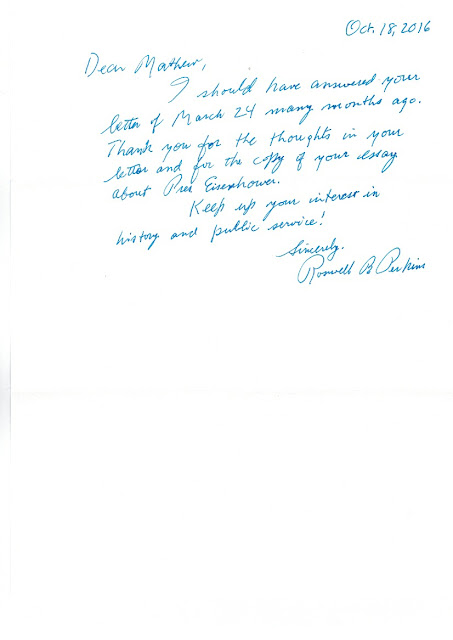 Oct. 18, 2016
Dear Mathew,
I should have answered your
letter of March 24 many months ago.
Thank you for the thoughts in your
letter and for the copy of your essay
about Pres Eisenhower.
Keep up your interest in
history and public service!
Sincerely,
Roswell B Perkins